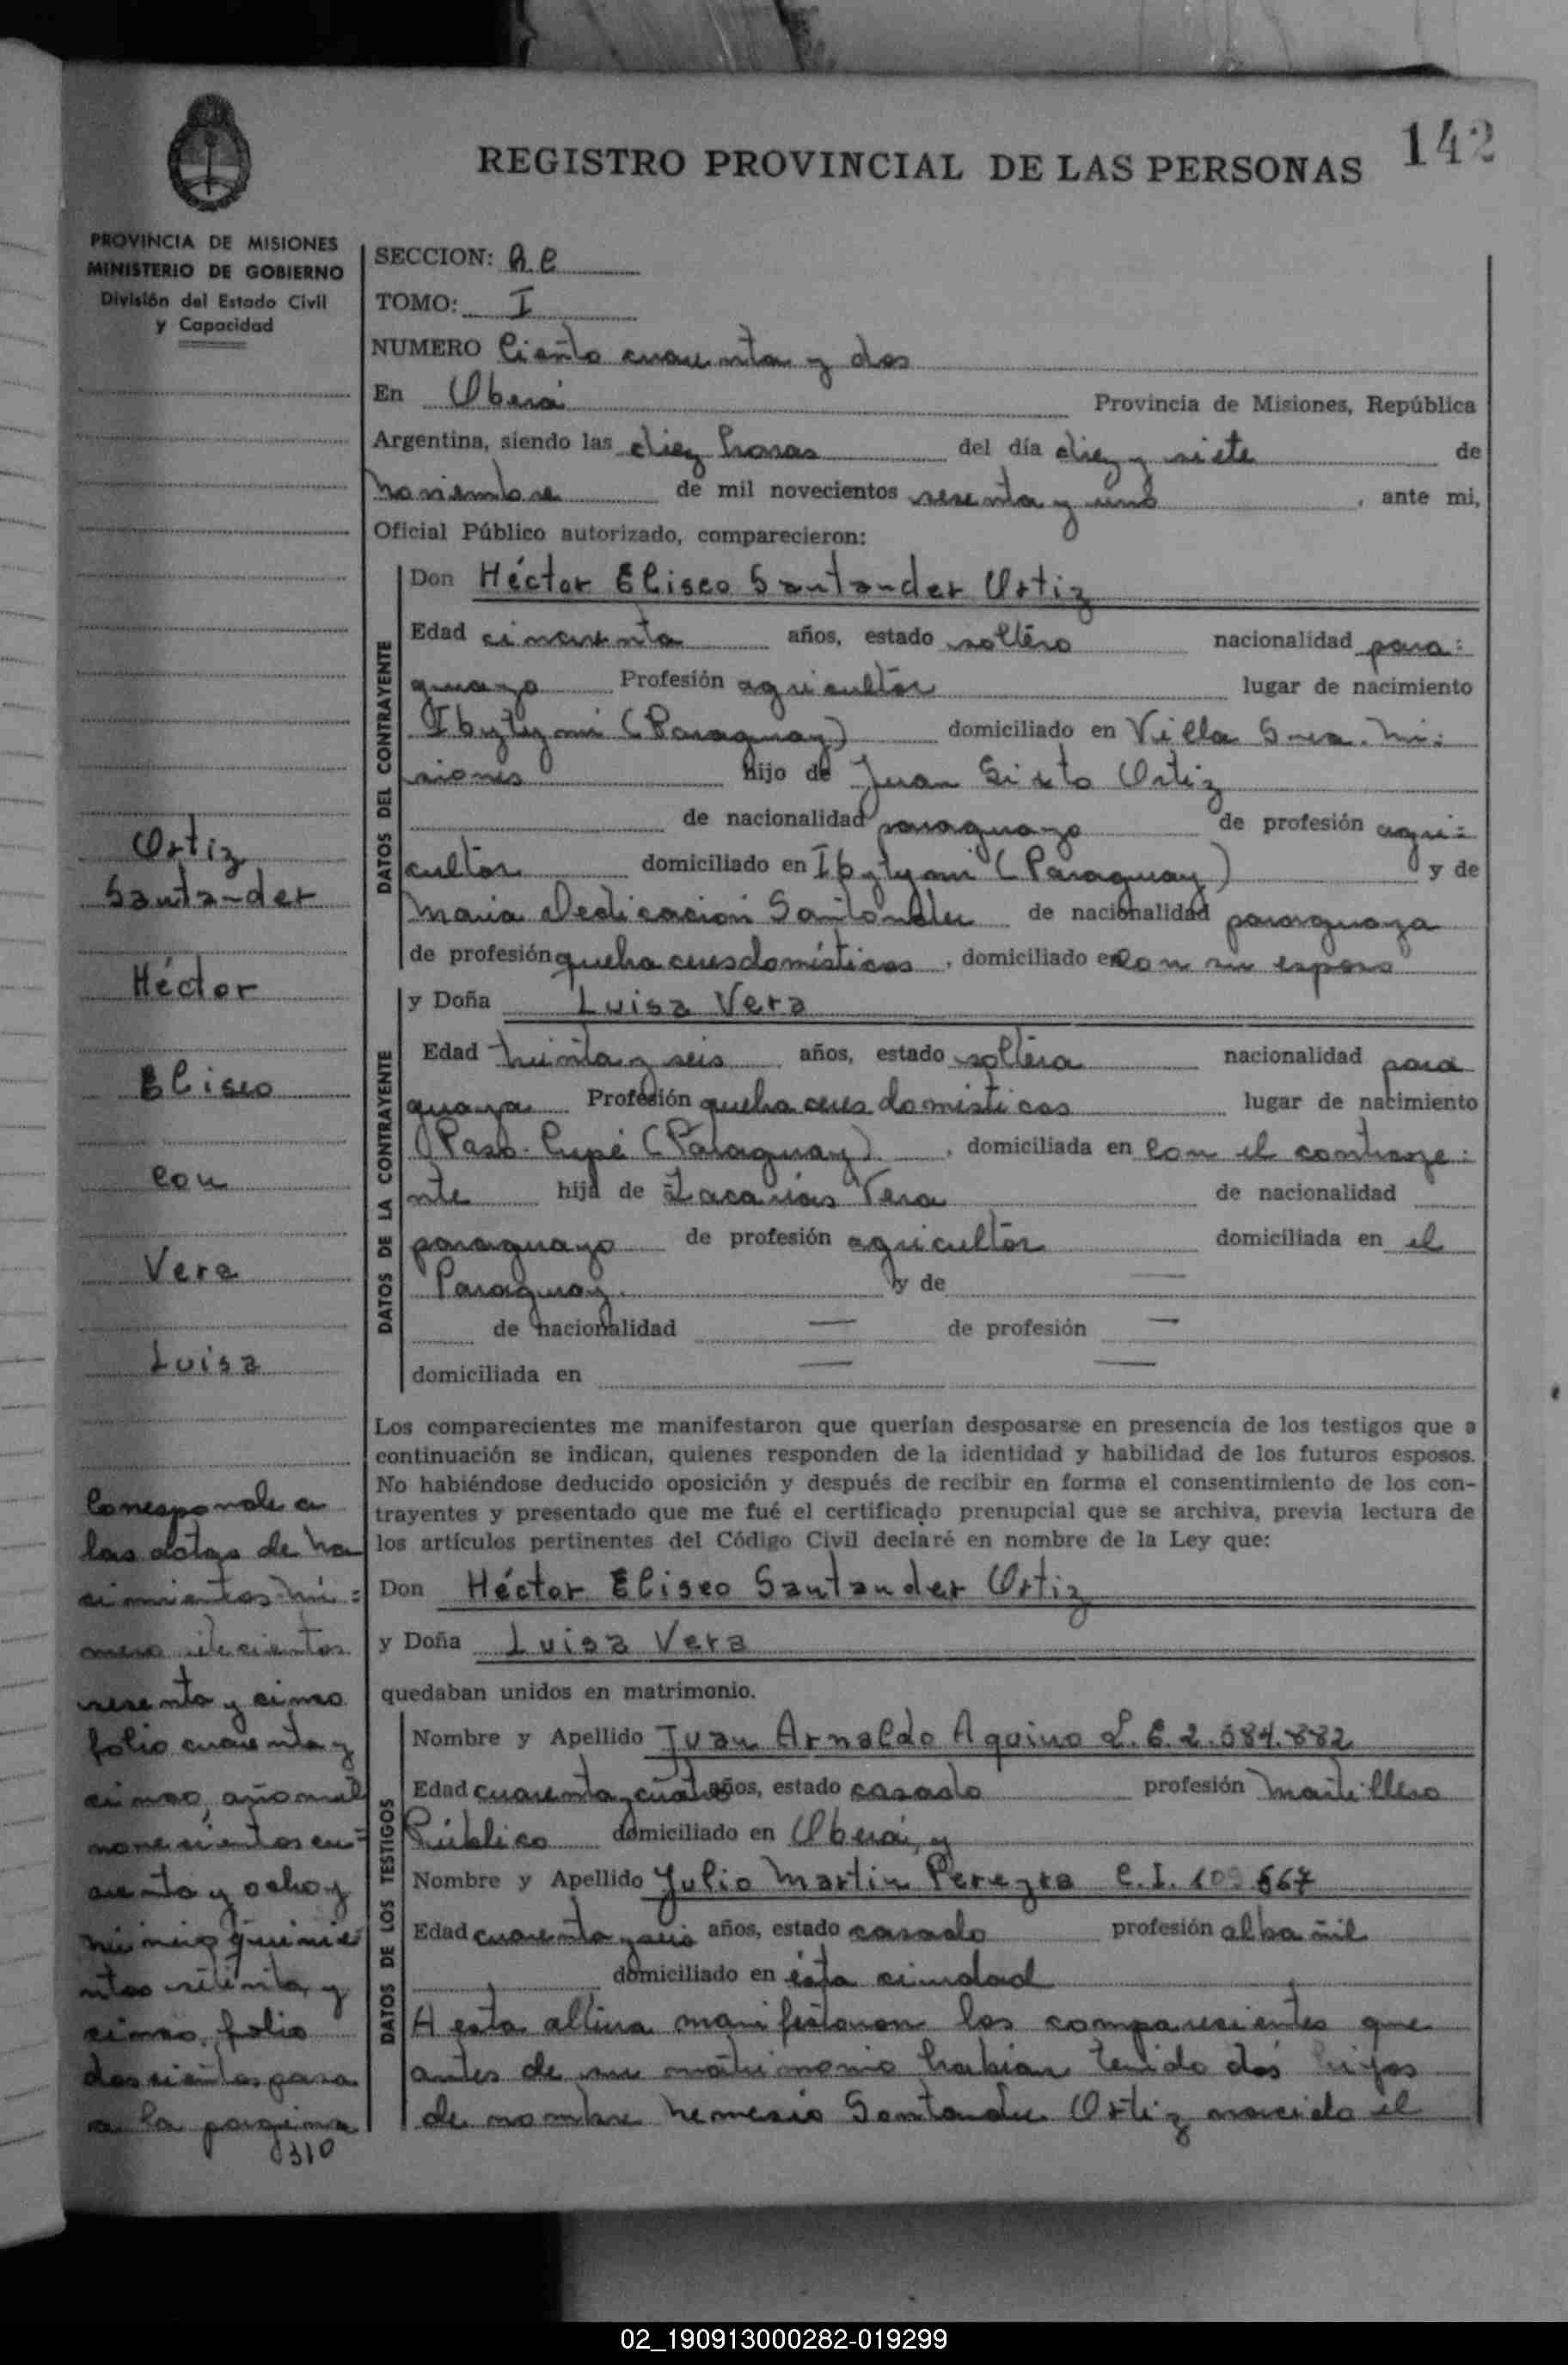 142
REGISTRO PROVINCIAL DE LAS PERSONAS
PROVINCIA DE MISIONES
MINISTERIO DE GOBIERNO
División del Estado Civil
y Capacidad
SECCION: A.C
TOMO: I
NUMERO Ciento cuarenta y dos
En Oberá Provincia de Misiones, República
Argentina, siendo las diez horas del día diez y siete de
noviembre de mil novecientos sesenta y uno, ante mi,
Oficial Público autorizado, comparecieron:
DATOS DEL CONTRAYENTE
Don Héctor Eliseo Santander Ortiz
Edad cincuenta años, estado soltero nacionalidad para:
guayo Profesión agricultor lugar de nacimiento
Ibytymi (Paraguay) domiciliado en Villa Svea. Mi:
siones hijo de Juan Sixto Ortiz
de nacionalidad paraguayo de profesión agri=
cultor domiciliado en Ibytymi (Paraguay) y de
Maria Dedicacion Santander de nacionalidad paraguaya
de profesión quehaceres domésticos, domiciliado en con su esposo
DATOS DE LA CONTRAYENTE
y Doña Luisa Vera
Edad treinta y seis años, estado soltera nacionalidad para
guaya Profesión quehaceres domésticos lugar de nacimiento
Paso. Cupé (Paraguay), domiciliada en con el contraye:
nte hija de Zacarías Vera de nacionalidad
paraguayo de profesión agricultor domiciliada en el
Paraguay. y de —
de nacionalidad — de profesión —
domiciliada en — —
Los comparecientes me manifestaron que querían desposarse en presencia de los testigos que a
continuación se indican, quienes responden de la identidad y habilidad de los futuros esposos.
No habiéndose deducido oposición y después de recibir en forma el consentimiento de los con-
trayentes y presentado que me fué el certificado prenupcial que se archiva, previa lectura de
los artículos pertinentes del Código Civil declaré en nombre de la Ley que:
Don Héctor Eliseo Santander Ortiz
y Doña Luisa Vera
quedaban unidos en matrimonio.
DATOS DE LOS TESTIGOS
Nombre y Apellido Juan Arnaldo Aquino L.E. 2.584.882
Edad cuarenta y cuatro años, estado casado profesión Martillero
Público domiciliado en Oberá, y
Nombre y Apellido Julio Martin Pereyra C.I. 667
Edad cuarenta y seis años, estado casado profesión albañil
domiciliado en ésta ciudad
A esta altura manifestaron los comparecientes que
antes de su matrimonio habian tenido dos hijos
de nombre Nemesio Santander Ortiz nacido el
Ortiz
Santander
Héctor
Eliseo
con
Vera
Luisa
Corresponde a
las actas de na
cimientos nú=
mero doscientos
sesenta y cinco
folio cuarenta y
cinco, año mil
novecientos cu=
arenta y ocho y
número quinie
ntos setenta y
cinco, folio
doscientos pasa
a la pagina
310
02_190913000282-019299